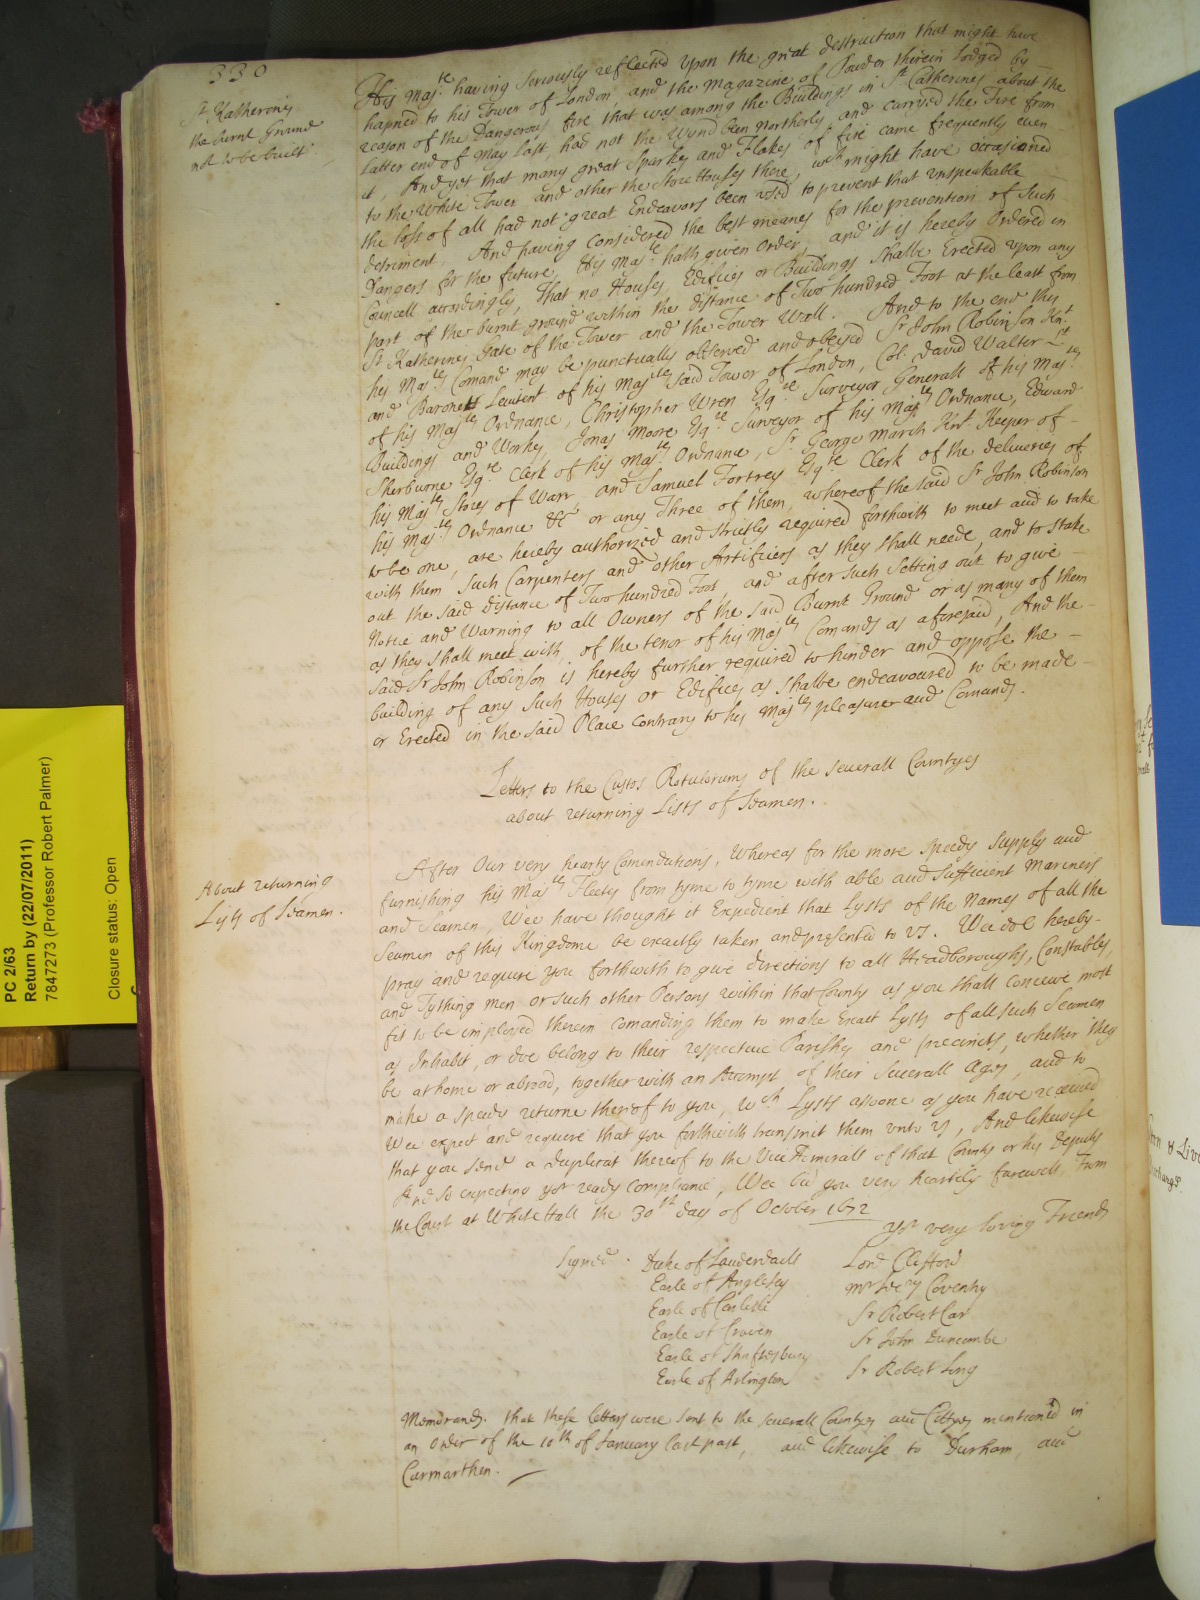 330
St Katherines
the burnt Ground
not to be built
His Maj.te having seriously reflected upon the great destruction that might have
hapned to his Tower of London, and the Magazine of Powder therein Lodged by
reason of the Dangerous fire that was among the Buildings in St Catherines about the
latter end of May last, had not the Wynd been Northerly and carryed the Fire from
it, And yet that many great Sparkes and Flakes of fire came frequently even
to the White Tower and other the Store Houses there, wch might have occasioned
the loss of all had not great Endeavors been used to prevent that unspeakable
detriment. And having Considered the best meanes for the prevention of such
Dangers for the future, His Maj.te hath given Order, and it is hereby Ordered in
Councell accordingly, That no Houses, Edifices or Buildings Shalbe Erected upon any
part of the burnt ground within the distance of Two hundred Foot at the least from
St Katherines Gate of the Tower and the Tower Wall. And to the end this
his Maj.tes Comand may be punctually observed and obeyed Sr John Robinson Knt
and Baronett Leivtent of his Maj.tes said Tower of London, Col. David Walter Lt
of his Maj.tes Ordnance, Christopher Wren Esq.re Surveyor Generall of his Maj.tes
Buildings and Workes, Jonas Moore Esq.re Surveyor of his Maj.tes Ordnance, Edward
Sherburne Esq.re Clerk of his Maj.tes Ordnance, Sr George March Knt. Keeper of
his Maj.tes Stores of Warr, and Samuel Fortrey Esq.re Clerk of the deliveries of
his Maj.tes Ordnance &c or any Three of them, whereof the said Sr John Robinson
to be one, are hereby authorized and strictly required forthwith to meet and to take
with them such Carpenters and other Artificers as they shall neede, and to stake
out the said distance of Two hundred Foot, and after such setting out to give
Notice and Warning to all Owners of the said Burnt Ground or as many of them
as they shall meet with, of the tenor of his Maj.tes Comands as aforesaid, And the
said Sr John Robinson is hereby further required to hinder and oppose the
building of any such Houses or Edifices as shalbe endeavoured to be made
or Erected in the said Place contrary to his Maj.tes pleasure and Comands.
Letters to the Custos Rotulorums of the severall Countyes
about returning Lists of Seamen.
About returning
Lists of Seamen.
After Our very hearty Comendations, Whereas for the more speedy supply and
furnishing his Maj.tes Fleets from tyme to tyme with able and sufficient Mariners
and Seamen, Wee have thought it Expedient that Lysts of the Names of all the
Seamen of this Kingdome be exactly taken and presented to us. Wee doe hereby
pray and require you forthwith to give directions to all Headboroughs, Constables,
and Tything men or such other Persons within that County as you shall conceive most
fit to be imployed therein comanding them to make Exact Lysts of all such Seamen
as Inhabit, or doe belong to their respective Parishes and precincts, whether they
be at home or abroad, together with an Attempt of their severall Ages, and to
make a speedy returne thereof to you, Wch Lysts assoone as you have received
Wee expect and require that you forthwith transmit them unto us, And likewise
that you send a duplicat thereof to the Vice Admirall of that County or his Deputy
And so expecting yor ready complyance, Wee bid you very heartily farewell, From
the Court at White Hall the 30th day of October 1672
Yor very loving Friends
Signed. Duke of Lauderdaill Lord Clifford
Earle of Anglesey Mr Secry Coventry
Earle of Carlisle Sr Robert Car
Earle of Craven Sr John Duncombe
Earle of Shaftesbury Sr Robert Long
Earle of Arlington
Memorand. that these letters were sent to the severall Countyes and Cittyes mentioned in
an Order of the 10th of January last past, and likewise to Durham, and
Carmarthen.
PC 2/63
Return by (22/07/2011)
7847273 (Professor Robert Palmer)
Closure status: Open